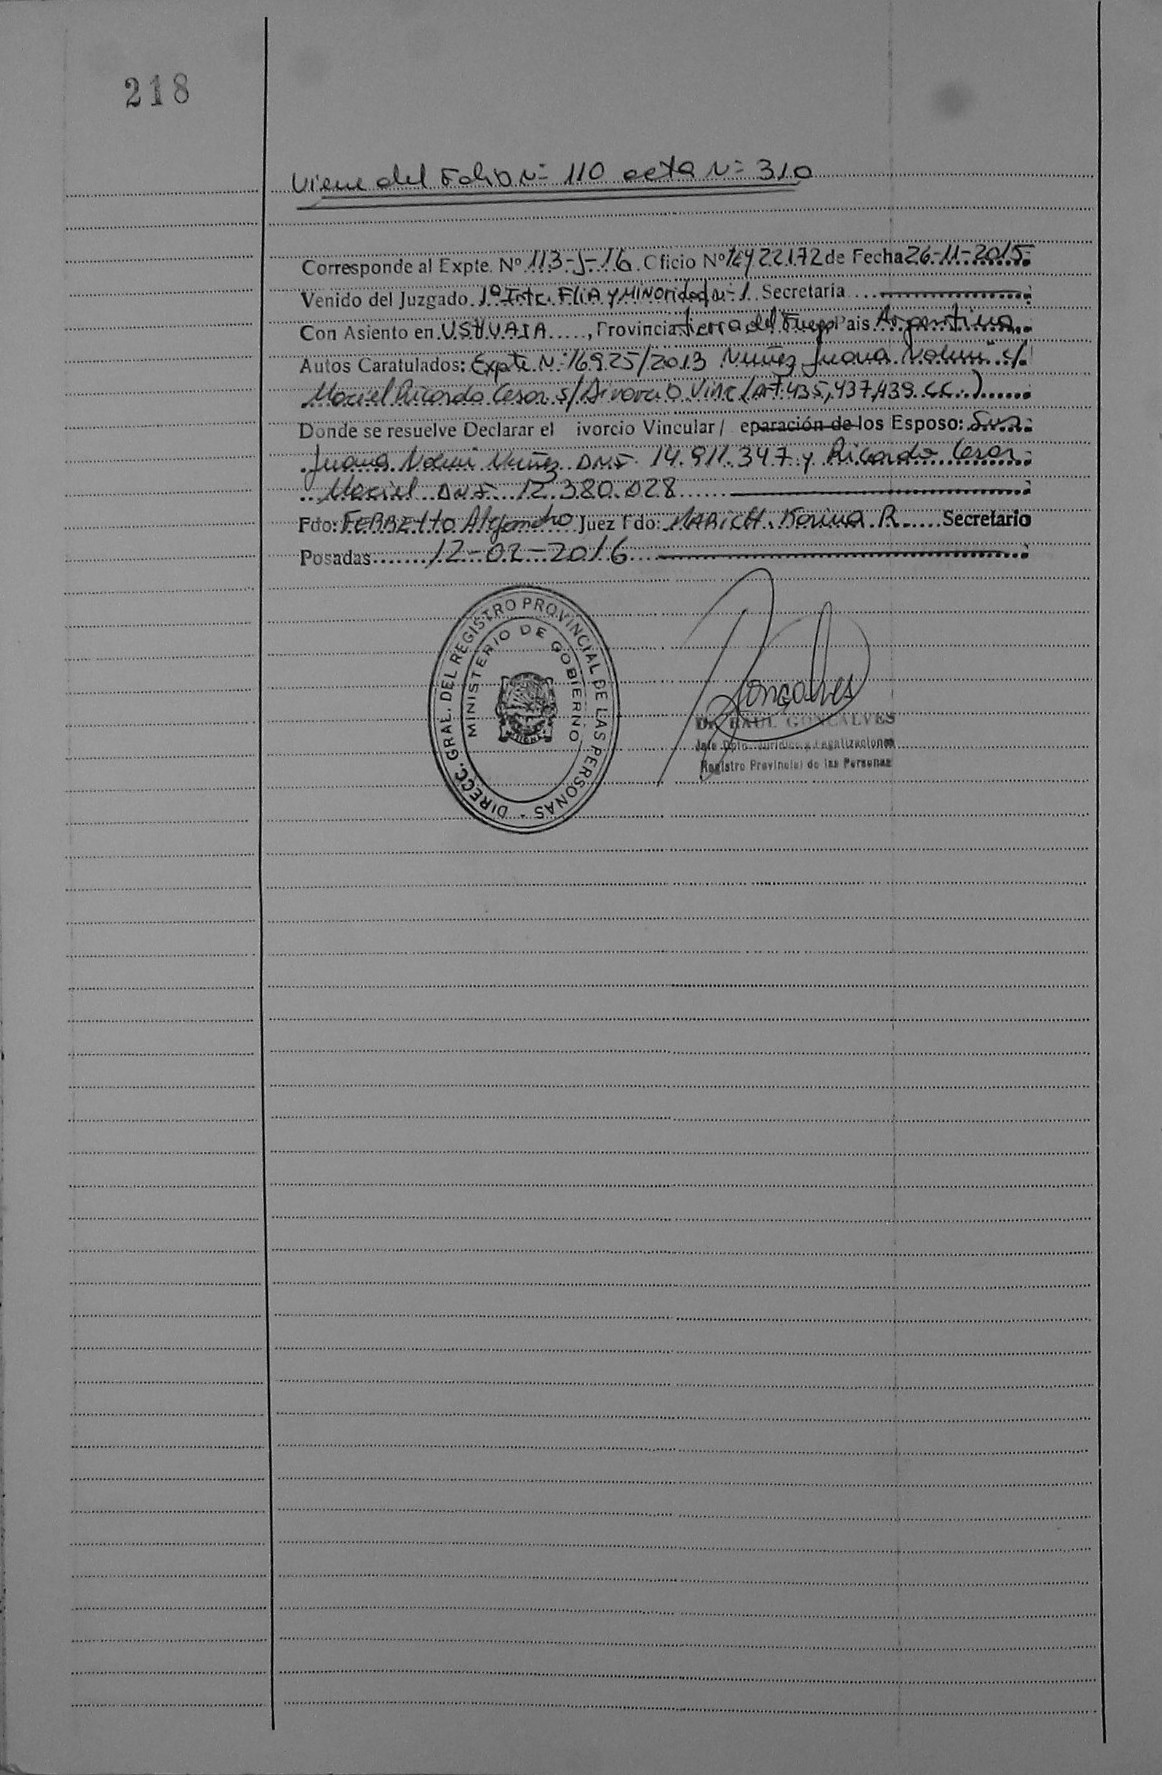 218
Viene del Folio Nº 110 acta Nº 310
Corresponde al Expte. Nº 113-J-16 Oficio Nº 22172 de Fecha 26-11-2015
Venido del Juzgado 1º Inst. FliA y MiNoridad Nº 1 Secretaria
Con Asiento en USHUAIA, Provincia tierra del Fuego Pais Argentina
Autos Caratulados: Expte Nº 16925/2013 Nuñez Juana Noemi c/
Maciel Ricardo Cesar s/ Divorcio Vinc (art. 435, 437, 439 CC.)
Donde se resuelve Declarar el ivorcio Vincular / eparación de los Esposo: Sra.
Juana Noemi Nuñez DNI. 14.911.347 y Ricardo Cesar
Maciel DNI. 12.380.028
Fdo: FERRETTO Alejandro Juez Fdo: MARICH Karina R. Secretario
Posadas 12-02-2016
DIRECC. GRAL. DEL REGISTRO PROVINCIAL DE LAS PERSONAS -
MINISTERIO DE GOBIERNO
Goncalves
Dr. RAUL GONCALVES
Jefe Dpto. Juridico y Legalizaciones
Registro Provincial de las Personas